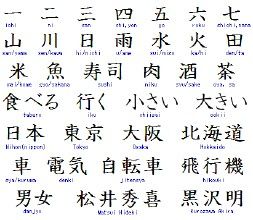 一 二 三 四 五 六 七
ichi ni san shi,yon go roku shichi,nana
山 川 日 雨 水 火 田
sen/kawa hi/nichi u/ame sui/mizu ka/hi den/ta
米 魚 寿司 肉 酒 茶
mai/kome gyo/sakana sushi niku syu/sake
食べる 行く 小さい 大きい
taberu iku
日本 東京 大阪 北海道
Nihon(nippon) Tokyo Osaka Hokkaido
車 電気 自転車 飛行機
sya/kuruma denki jitensya hikouki
男女 松井秀喜 黒沢明
danjyo Matsui Hideki Kurozawa Akira